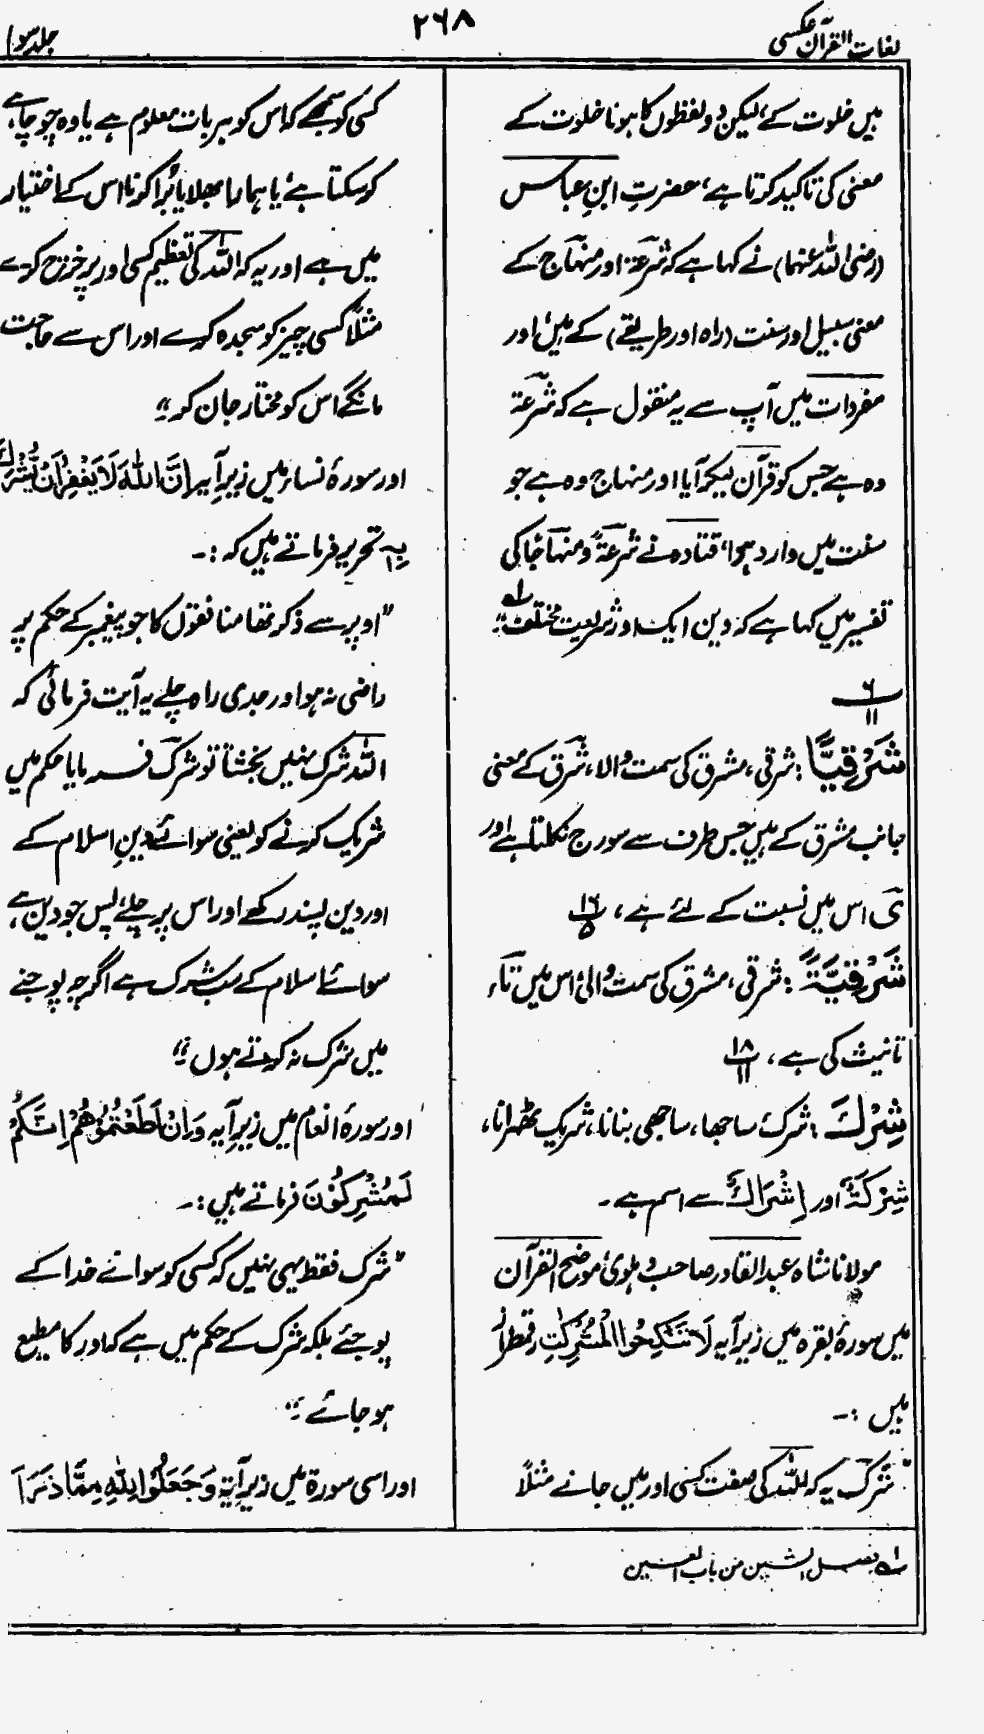 لغات القرآن عکسی
۲۶۸
جلد سوم
میں خلوت کے، لیکن دو لفظوں کا ہونا خلوت کے
معنی کی تاکید کرتا ہے، حضرتِ ابنِ عباس
(رضی اللہ عنہما) نے کہا ہے کہ شرعۃ اور منہاج کے
معنی سبیل اور سنت (راہ اور طریقے) کے ہیں، اور
مفردات میں آپ سے یہ منقول ہے کہ شرعۃ
وہ ہے جس کو قرآن لیکر آیا اور منہاج وہ ہے جو
سنت میں وارد ہوا، قتادہ نے شرعۃً و منہاجًا کی
تفسیر میں کہا ہے کہ دین ایک اور شریعت مختلف؛ لہ
۶
۱۱
شَرْقِیًّا: شرقی، مشرق کی سمت والا، شرق کے معنی
جانب مشرق کے ہیں جس طرف سے سورج نکلتا ہے اور
ی اس میں نسبت کے لئے ہے، ۱۶ ۵
شَرْقِیَّةً: شرقی، مشرق کی سمت والی، اس میں تاء
تانیث کی ہے، ۱۸ ۱۱
شِرْكَ: شرک، ساجھا، ساجھی بنانا، شریک ٹھہرانا،
شِرْكَةٌ اور اِشْرَاكٌ سے اسم ہے۔
مولانا شاہ عبدالقادر صاحب دہلوی موضح القرآن
میں سورۂ بقرہ میں زیرِ آیہ لَا تَنْكِحُوا الْمُشْرِكٰتِ رقمطراز
ہیں :۔
"شرک یہ کہ اللہ کی صفت کسی اور میں جانے مثلًا
کسی کو سمجھے کہ اس کو ہر بات معلوم ہے یا وہ جو چاہے
کر سکتا ہے، یا ہمارا بھلا یا بُرا کرنا اس کے اختیار
میں ہے اور یہ کہ اللہ کی تعظیم کسی اور پر خرچ کرے
مثلًا کسی چیز کو سجدہ کرے اور اس سے حاجت
مانگے اس کو مختار جان کر؛"
اور سورۂ نساء میں زیرِ آیہ اِنَّ اللّٰهَ لَا یَغْفِرُ اَنْ یُّشْرَكَ
بِهٖ تحریر فرماتے ہیں کہ :۔
"اوپر سے ذکر تھا منافقوں کا جو پیغمبر کے حکم پر
راضی نہ ہوا اور جدی راہ چلے یہ آیت فرمائی کہ
اللہ شرک نہیں بخشتا تو شرک فرمایا حکم میں
شریک کرنے کو یعنی سوائے دینِ اسلام کے
اور دین پسند رکھے اور اس پر چلے، پس جو دین ہے
سوائے اسلام کے سب شرک ہے اگرچہ پوجنے
میں شرک نہ کرتے ہوں؛"
اور سورۂ انعام میں زیرِ آیہ وَاِنْ اَطَعْتُمُوْهُمْ اِنَّكُمْ
لَمُشْرِكُوْنَ فرماتے ہیں :۔
"شرک فقط یہی نہیں کہ کسی کو سوائے خدا کے
پوجئے بلکہ شرک کے حکم میں ہے کہ اور کا مطیع
ہو جائے؛"
اور اسی سورۃ میں زیرِ آیۃ وَجَعَلُوْا لِلّٰهِ مِمَّا ذَرَاَ
لہ بفصل الشین من باب العین